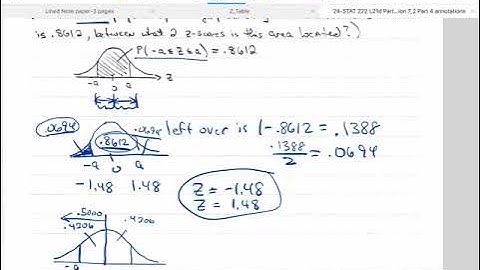 Lined Note paper-3 pages
Z_Table
24-STAT 272 L21d Part...ion 7_2 Part 4 annotations
is .8612, between what 2 z-scores is this area located?)
P(-a≤Z≤a) = .8612
-a 0 a Z
.0694 .8612 .0694 left over is 1-.8612 = .1388
-a 0 a
.1388/2 = .0694
-1.48 1.48
Z = -1.48
Z = 1.48
.5000
.4206 .4206
-a